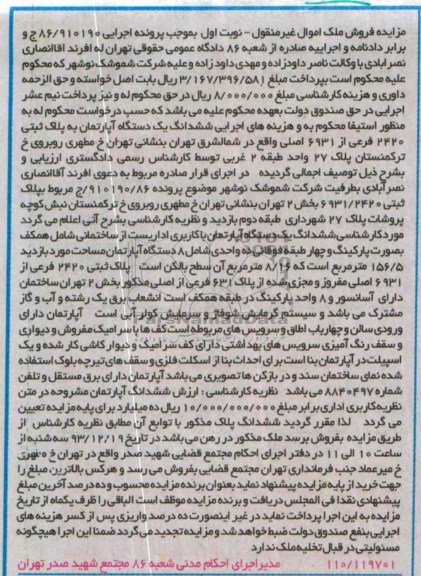 مزایده فروش ملک اموال غیرمنقول - نوبت اول بموجب پرونده اجرایی ۸۶/۹۱۰۱۹۰ ج و
برابر دادنامه و اجراییه صادره از شعبه ۸۶ دادگاه عمومی حقوقی تهران له افرند آقاانصاری
نصرآبادی با وکالت ناصر داودزاده و مهدی داود زاده و علیه شرکت شموشک نوشهر که محکوم
علیه محکوم است بپرداخت مبلغ ۳/۱۶۷/۳۹۶/۵۸۱ ریال بابت اصل خواسته و حق الزحمه
داوری و هزینه کارشناسی مبلغ ۸/۰۰۰/۰۰۰ ریال در حق محکوم له و نیز پرداخت نیم عشر
اجرایی در حق صندوق دولت بعهده محکوم علیه می باشد که حسب درخواست محکوم له به
منظور استیفا محکوم به و هزینه های اجرایی ششدانگ یک دستگاه آپارتمان به پلاک ثبتی
۲۴۲۰ فرعی از ۶۹۳۱ اصلی واقع در شمالشرق تهران بنشانی تهران خ مطهری روبروی خ
ترکمنستان پلاک ۲۷ واحد طبقه ۲ غربی توسط کارشناس رسمی دادگستری ارزیابی و
بشرح ذیل توصیف اجمالی گردیده در اجرای قرار صادره مربوط به دعوی افرند آقاانصاری
نصرآبادی بطرفیت شرکت شموشک نوشهر موضوع پرونده ۹۱۰۱۹۰/۸۶ ج مربوط بپلاک
ثبتی ۶۹۳۱/۲۴۲۰ بخش ۲ تهران بنشانی تهران خ مطهری روبروی خ ترکمنستان نبش کوچه
پروشات پلاک ۲۷ شهرداری طبقه دوم بازدید و نظریه کارشناسی بشرح آتی اعلام می گردد
مورد کارشناسی ششدانگ یک دستگاه آپارتمان با کاربری اداریست از ساختمانی شامل همکف
بصورت پارکینگ و چهار طبقه فوقانی ده واحدی شامل ۸ دستگاه آپارتمان مساحت مورد بازدید
۱۵۶/۵ مترمربع است که ۸/۱۶ مترمربع آن سطح بالکن است پلاک ثبتی ۲۴۲۰ فرعی از
۶۹۳۱ اصلی مفروز و مجزی شده از پلاک ۶۳۱ فرعی از اصلی مذکور بخش ۲ تهران ساختمان
دارای آسانسور و ۸ واحد پارکینگ در طبقه همکف است انشعاب برق یک رشته و آب و گاز
مشترک می باشد و سیستم گرمایش شوفاژ و سرمایش کولر آبی است آپارتمان دارای
ورودی سالن و چهار باب اطاق و سرویس های مربوطه است کف ها با سرامیک مفروش و دیواری
و سقف رنگ آمیزی سرویس های بهداشتی دارای کف سرامیک و دیوار کاشی کار شده و یک
اسپیلت در آپارتمان بنا است برای احداث بنا از اسکلت فلزی و سقف های تیرچه بلوک استفاده
شده نمای ساختمان سند و در بازکن ها تصویری می باشد آپارتمان دارای برق مستقل و تلفن
شماره ۸۸۴۰۴۹۷ می باشد نظریه کارشناسی : ارزش ششدانگ آپارتمان مشروحه در متن
نظریه کاربری اداری برابر مبلغ ۱۰/۰۰۰/۰۰۰/۰۰۰ ریال ده میلیارد برای پایه مزایده تعیین
می گردد لذا مقرر گردید ششدانگ پلاک مذکور با توابع آن مطابق نظریه کارشناس از
طریق مزایده بفروش برسد ملک مذکور در رهن می باشد در تاریخ ۹۳/۱۲/۱۹ سه شنبه از
ساعت ۱۰ الی ۱۱ در دفتر اجرای احکام مجتمع قضایی شهید صدر واقع در تهران خ مطهری
خ میرعماد جنب فرمانداری تهران مجتمع قضایی بفروش می رسد و هرکس بالاترین مبلغ را
جهت خرید از پایه مزایده پیشنهاد نماید بعنوان برنده مزایده محسوب و ده درصد آخرین مبلغ
پیشنهادی نقدا فی المجلس دریافت و برنده مزایده موظف است الباقی را ظرف یکماه از تاریخ
مزایده به این اجرا پرداخت نماید در غیر اینصورت ده درصد واریزی پس از کسر هزینه های
اجرایی بنفع صندوق دولت ضبط خواهد شد و مزایده تجدید می گردد ضمنا این اجرا هیچگونه
مسئولیتی در قبال تخلیه ملک ندارد
۱۱۰/۱۱۹۷۰۱ مدیر اجرای احکام مدنی شعبه ۸۶ مجتمع شهید صدر تهران